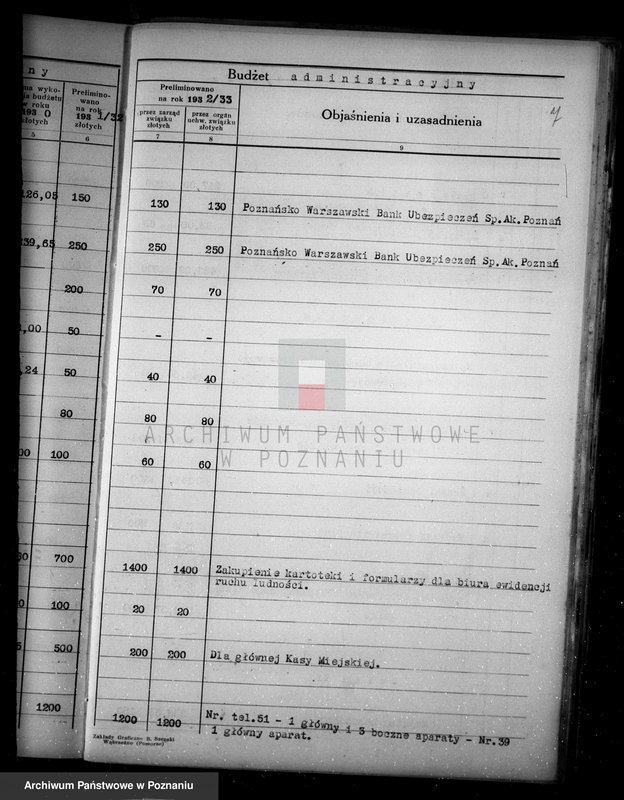 n y
Budżet administracyjny
na wyko-
ia budżetu
w roku
193 0
złotych
Prelimino-
wano
na rok
193 1/32
złotych
Preliminowano
na rok 193 2/33
przez zarząd
związku
złotych
przez organ
uchw. związku
złotych
Objaśnienia i uzasadnienia
5 6 7 8 9
126,05 150 130 130 Poznańsko Warszawski Bank Ubezpieczeń Sp.Ak.Poznań
39,65 250 250 250 Poznańsko Warszawski Bank Ubezpieczeń Sp.Ak.Poznań
200 70 70
,00 50 - -
,24 50 40 40
80 80 80
00 100 60 60
ARCHIWUM PAŃSTWOWE
W POZNANIU
700 1400 1400 Zakupienie kartoteki i formularzy dla biura ewidencji
ruchu ludności.
0 100 20 20
500 200 200 Dla głównej Kasy Miejskiej.
1200 1200 1200 Nr. tel.51 - 1 główny i 5 boczne aparaty - Nr.39
1 główny aparat.
Zakłady Graficzne B. Szczuki
Wąbrzeźno (Pomorze)
Archiwum Państwowe w Poznaniu